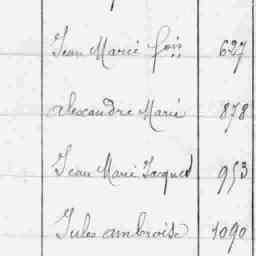 Jean Marie fois 627
alexandre Marie 878
Jean Marie Jacques 953
Jules ambroise 1090